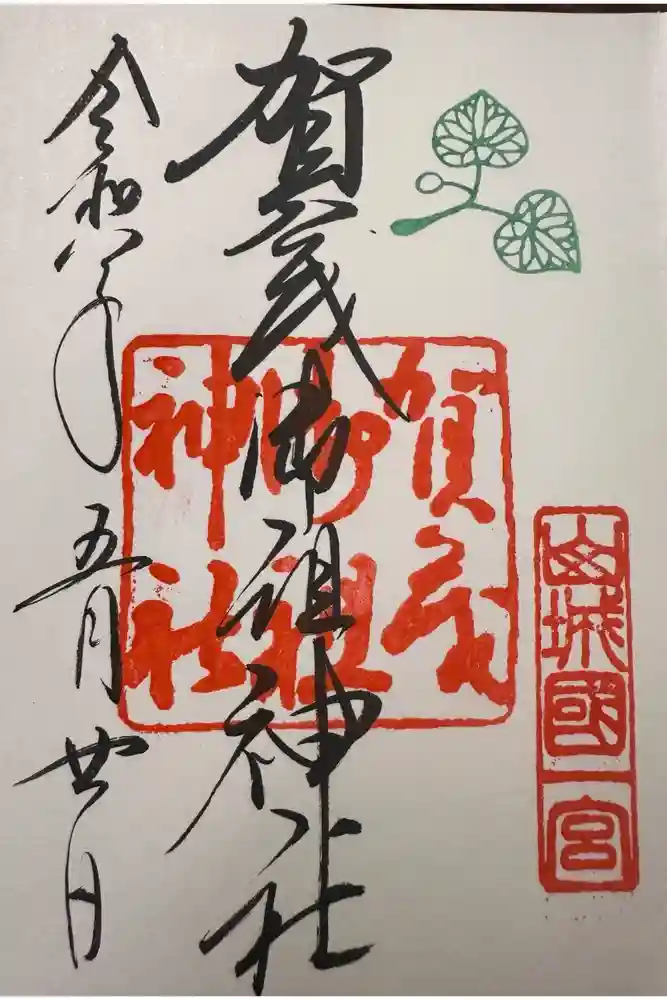 山城國一宮
賀茂御祖神社
賀茂
御祖
神社
令和八年五月廿日